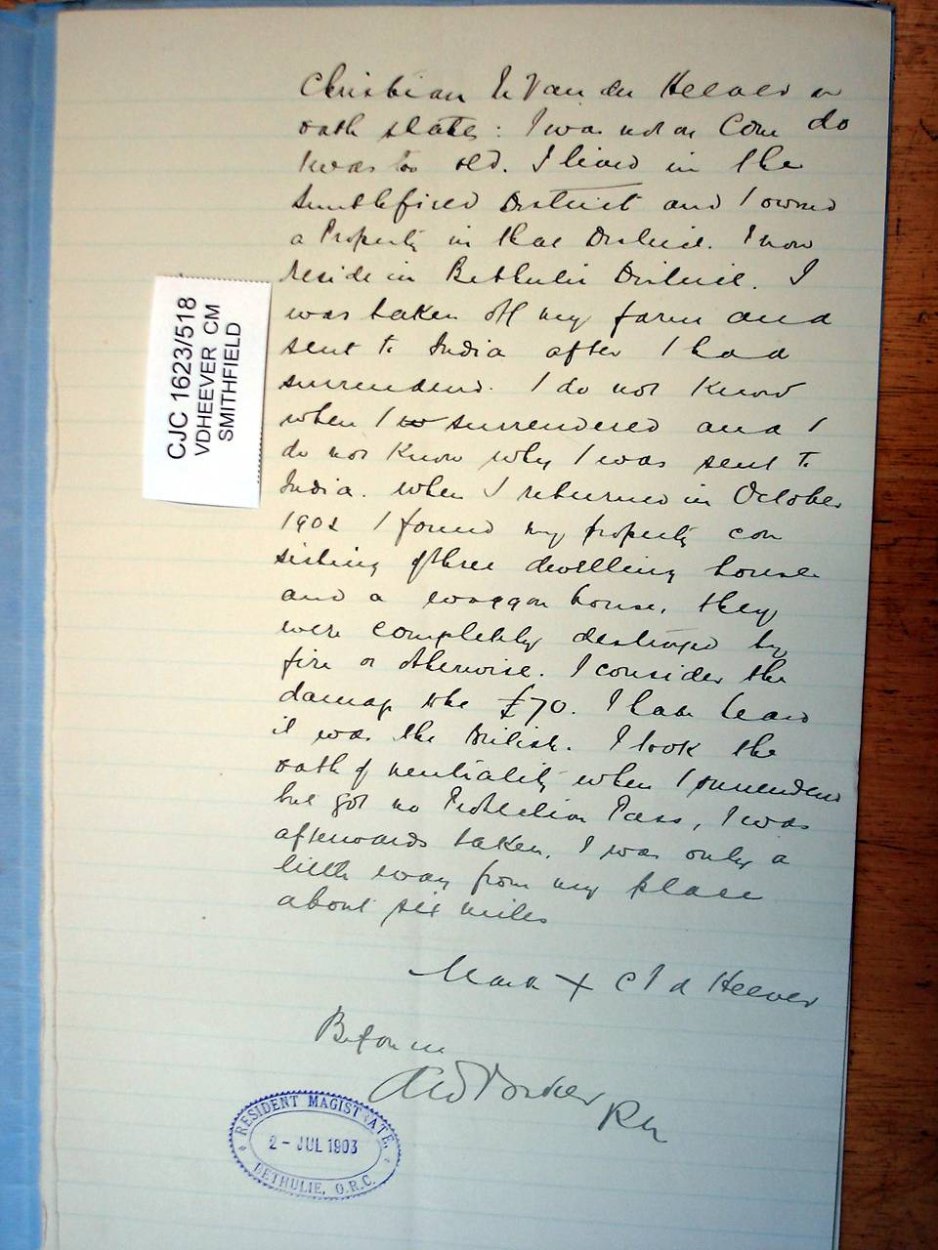 Christian Van der Heever on
oath states: I was not on Com do
I was too old. I lived in the
Smithfield District and I owned
a Property in that District. I now
reside in Bethulie District. I
was taken off my farm and
sent to India after I had
surrendered. I do not know
when I surrendered and I
do not know why I was sent to
India. When I returned in October
1902 I found my property con
sisting of three dwelling house
and a waggon house, they
were completely destroyed by
fire or otherwise. I consider the
damage to be £70. I have heard
it was the British. I took the
oath of neutrality when I surrendered
but got no Protection Pass, I was
afterwards taken. I was only a
little way from my place
about six miles
Mark + C d Heever
Before me
RM
CJC 1623/518
VDHEEVER CM
SMITHFIELD
RESIDENT MAGISTRATE.
2 - JUL 1903
BETHULIE, O.R.C.